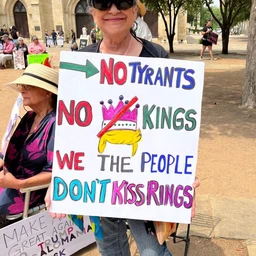 NO TYRANTS
NO KINGS
WE THE PEOPLE
DON'T KISS RINGS
MAKE
GREAT AGA